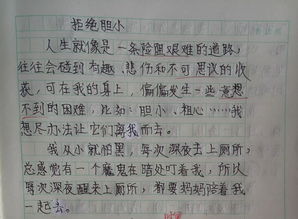 拒绝胆小
人生就像是一条险阻艰难的道路，
往往会碰到有趣、悲伤和不可思议的收
获，可在我的身上，偏偏发生一些意想
不到的困难，比如：胆小、粗心……我
想尽办法让它们离我而去。
我从小就怕黑，每次深夜去上厕所，
总感觉有一个魔鬼在暗处叮着我，所以
每次深夜醒来上厕所，都要妈妈陪着我
一起去。